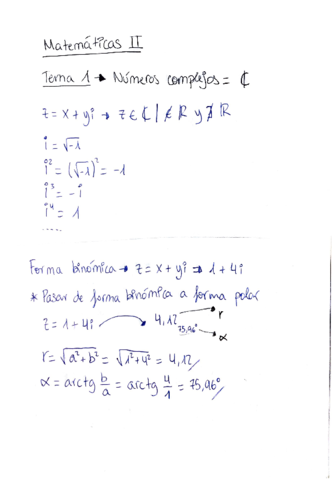 Matemáticas II
Tema 1 → Números complejos = ℂ
z = x + yi → z ∈ ℂ | ∉ ℝ y ∄ ℝ
i = √-1
i² = (√-1)² = -1
i³ = -i
i⁴ = 1
.....
Forma binómica → z = x + yi ⇒ 1 + 4i
* Pasar de forma binómica a forma polar
z = 1 + 4i → 4,12 75,96° → r → α
r = √a² + b² = √1² + 4² = 4,12
α = arctg b/a = arctg 4/1 = 75,96°